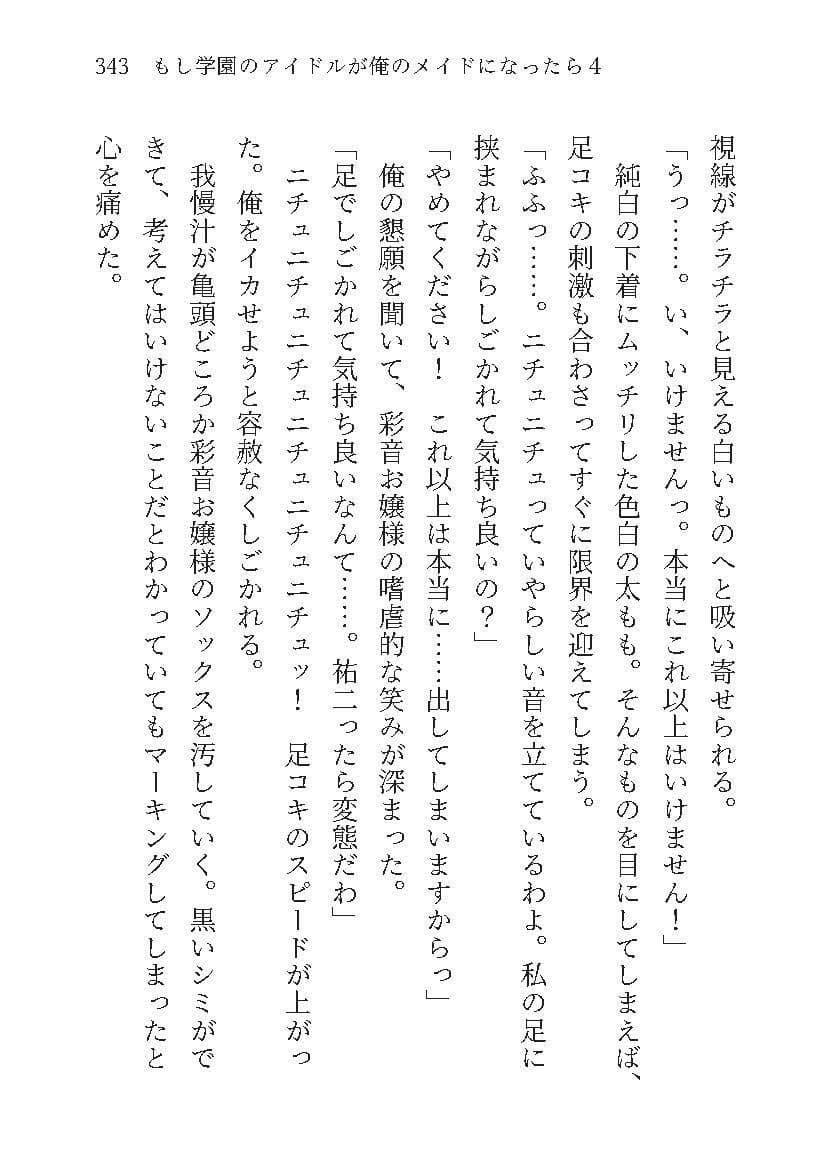 343　もし学園のアイドルが俺のメイドになったら４
視線がチラチラと見える白いものへと吸い寄せられる。
「うっ……。い、いけませんっ。本当にこれ以上はいけません！」
　純白の下着にムッチリした色白の太もも。そんなものを目にしてしまえば、
足コキの刺激も合わさってすぐに限界を迎えてしまう。
「ふふっ……。ニチュニチュっていやらしい音を立てているわよ。私の足に
挟まれながらしごかれて気持ち良いの？」
「やめてください！　これ以上は本当に……出してしまいますからっ」
　俺の懇願を聞いて、彩音お嬢様の嗜虐的な笑みが深まった。
「足でしごかれて気持ち良いなんて……。祐二ったら変態だわ」
　ニチュニチュニチュニチュニチュッ！　足コキのスピードが上がっ
た。俺をイカせようと容赦なくしごかれる。
　我慢汁が亀頭どころか彩音お嬢様のソックスを汚していく。黒いシミがで
きて、考えてはいけないことだとわかっていてもマーキングしてしまったと
心を痛めた。